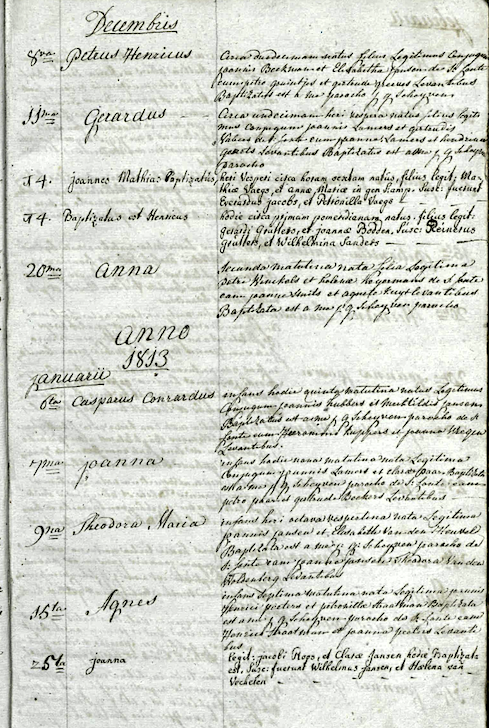 Decembris
8va Petrus Henricus Circa duodecimam natus filius Legitimus Conjugum
joannis Beckman et Elisabetha jansen de St fonte
cum petro quintjes et gertrude Levantibus
Baptizatus est a me parocho j: g: Scheyven
11ma Gerardus Circa undecimam heri vespera natus filius legiti
mus Conjugum joannis Lamers et gertrudis
de St fonte cum joanne Lamers et hendrina
geurts Levantibus Baptizatus est a me j: g: Scheyven
parocho
14. Joannes Mathias Baptizatus heri Vesperi circa horam octavam natus, filius legit: Ma-
thiæ Vaegs, et annæ Mariæ in gen kamp. Susc: fuerunt
Everardus jacobs, et Petronilla Vaegs
14. Baptizatus est Henricus hodie circa primam pomeridianam natus, filius legit:
gerardi Grutters, et joannæ Bodden, Susc: Reinerus
grutters, et Wilhelmina Sanders
20ma Anna Secunda matutina nata filia Legitima
Petri et helenæ hoyermans de St fonte
cum joanne Smits et Levantibus
Baptizata est a me j: g: Scheyven parocho
Anno
1813
januarii
6ta Casparus Conrardus infans hodie quinta matutina natus Legitimus
Conjugum joannis et Mechtildis jansen
Baptizatus est a me j: g: Scheyven parocho de St
fonte cum Hieronimo kuppers et joanna
Levantibus.
7ma joanna infans hodie nona matutina nata Legitima
Conjugum joannis Lamers et Claræ Baptizata
est a me j: g: Scheyven parocho de St fonte cum
petro et gertrude Beckers Levantibus
9na Theodora Maria infans heri octava vespertina nata Legitima
joannis jansen et Elisabeth Van den Heuvel
Baptizata est a me j: g: Scheyven parocho de
St fonte cum joanne jansen Theodora Van den
Levantibus
15ta Agnes infans Septima matutina nata Legitima
Henrici peeters et petronillæ Straatman Baptizata
est a me j: g: Scheyven parocho de St fonte cum
Henrico Straatman et joanna peeters Levanti
bus
25ta joanna legit: jacobi Hops, et Claræ jansen hodie Baptizata
est, Susc: fuerunt Wilhelmus jansen, et Helena van
Vechelen